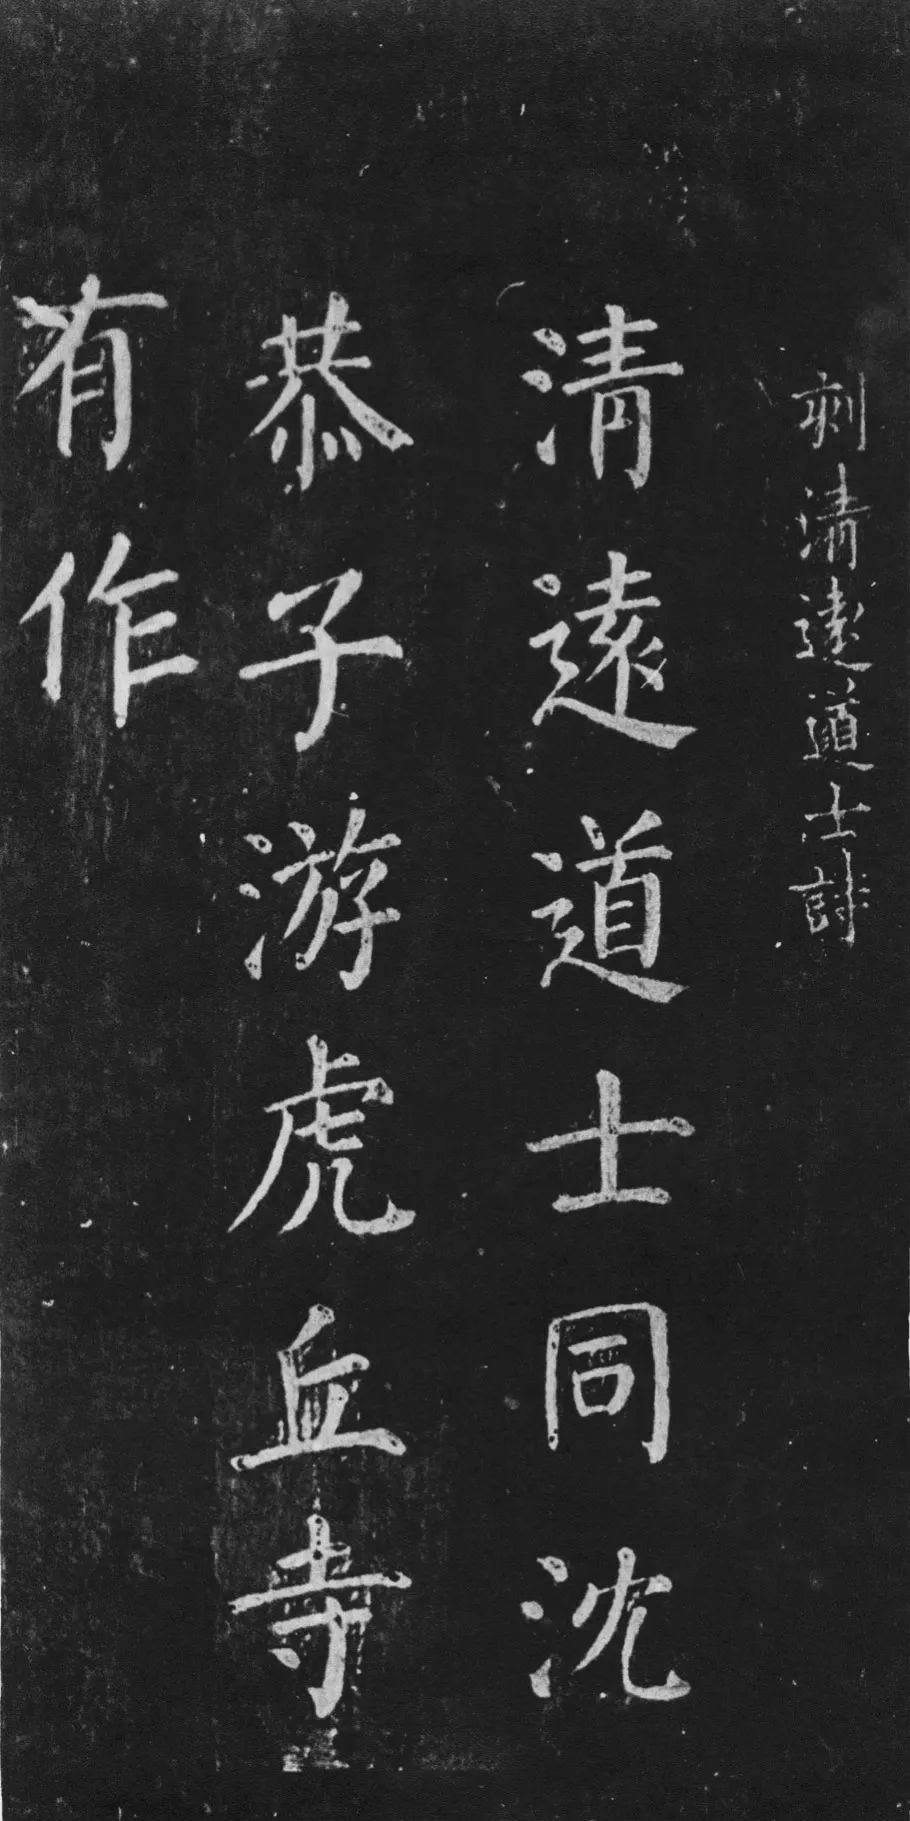 刺清遠道士詩
清遠道士同沈
恭子游虎丘寺
有作